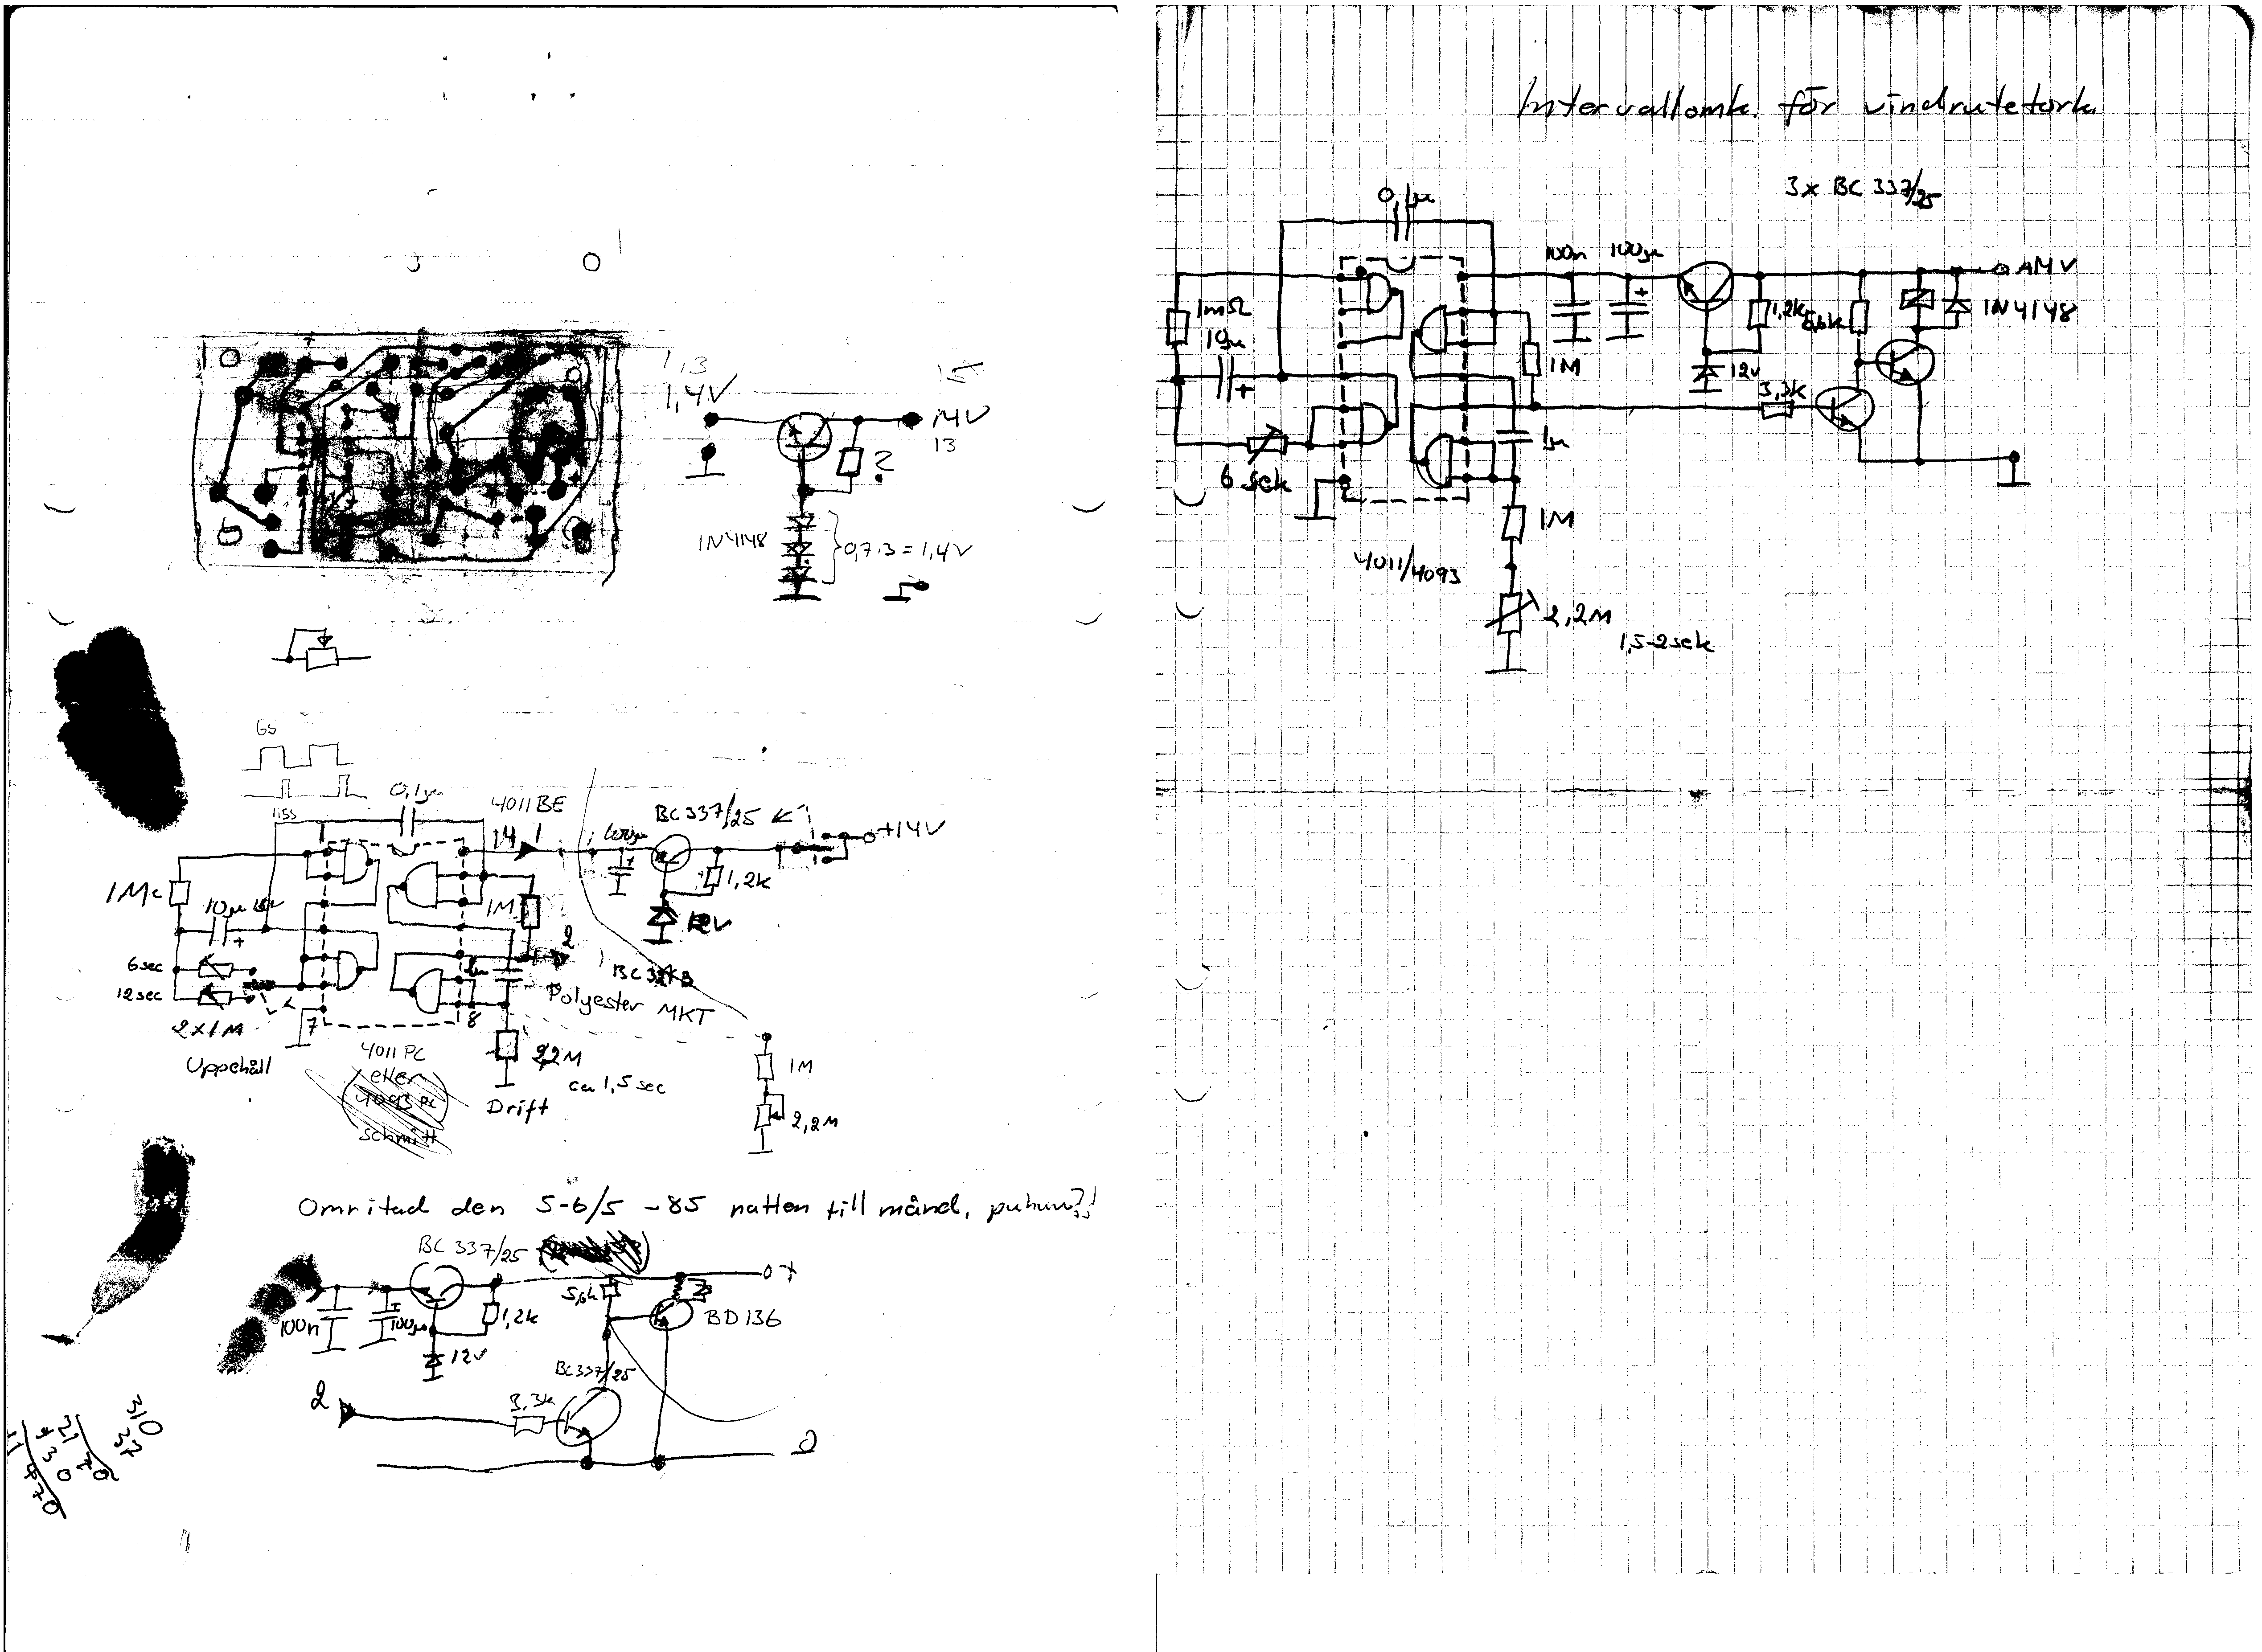 1,3
1,4V
14V
13
?
1N4148
0,7·3=1,4V
6S
1,5s
0,1µ
4011BE
14
1
1
BC337/25
+14V
100µ
1,2k
12V
10µ
1M
2
6sec
12sec
2x1M
Uppehåll
7
8
Polyester MKT
4011 PC
eller
4093 PC
schmitt
2,2M
ca 1,5 sec
Drift
1M
2,2M
Omritad den 5-6/5 -85 natten till månd,
BC 337/25
0 +
5,6k
BD136
100n
100µ
1,2k
12V
BC337/25
2
3,3k
310
37
Intervallomk. för vindrutetork.
3x BC 337/25
0,1µ
100n
100µ
14V
1mΩ
10µ
1M
1,2k
5,6k
1N4148
12V
3,3k
6 sek
1µ
1M
4011/4093
2,2M
1,5-2sek